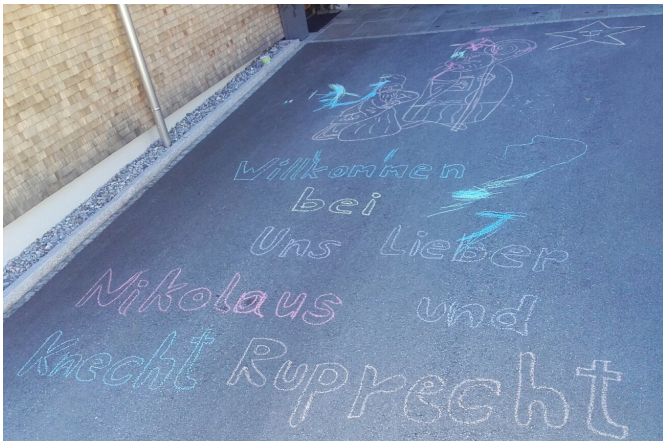 Willkommen
bei
Uns Lieber
Nikolaus und
Knecht Ruprecht